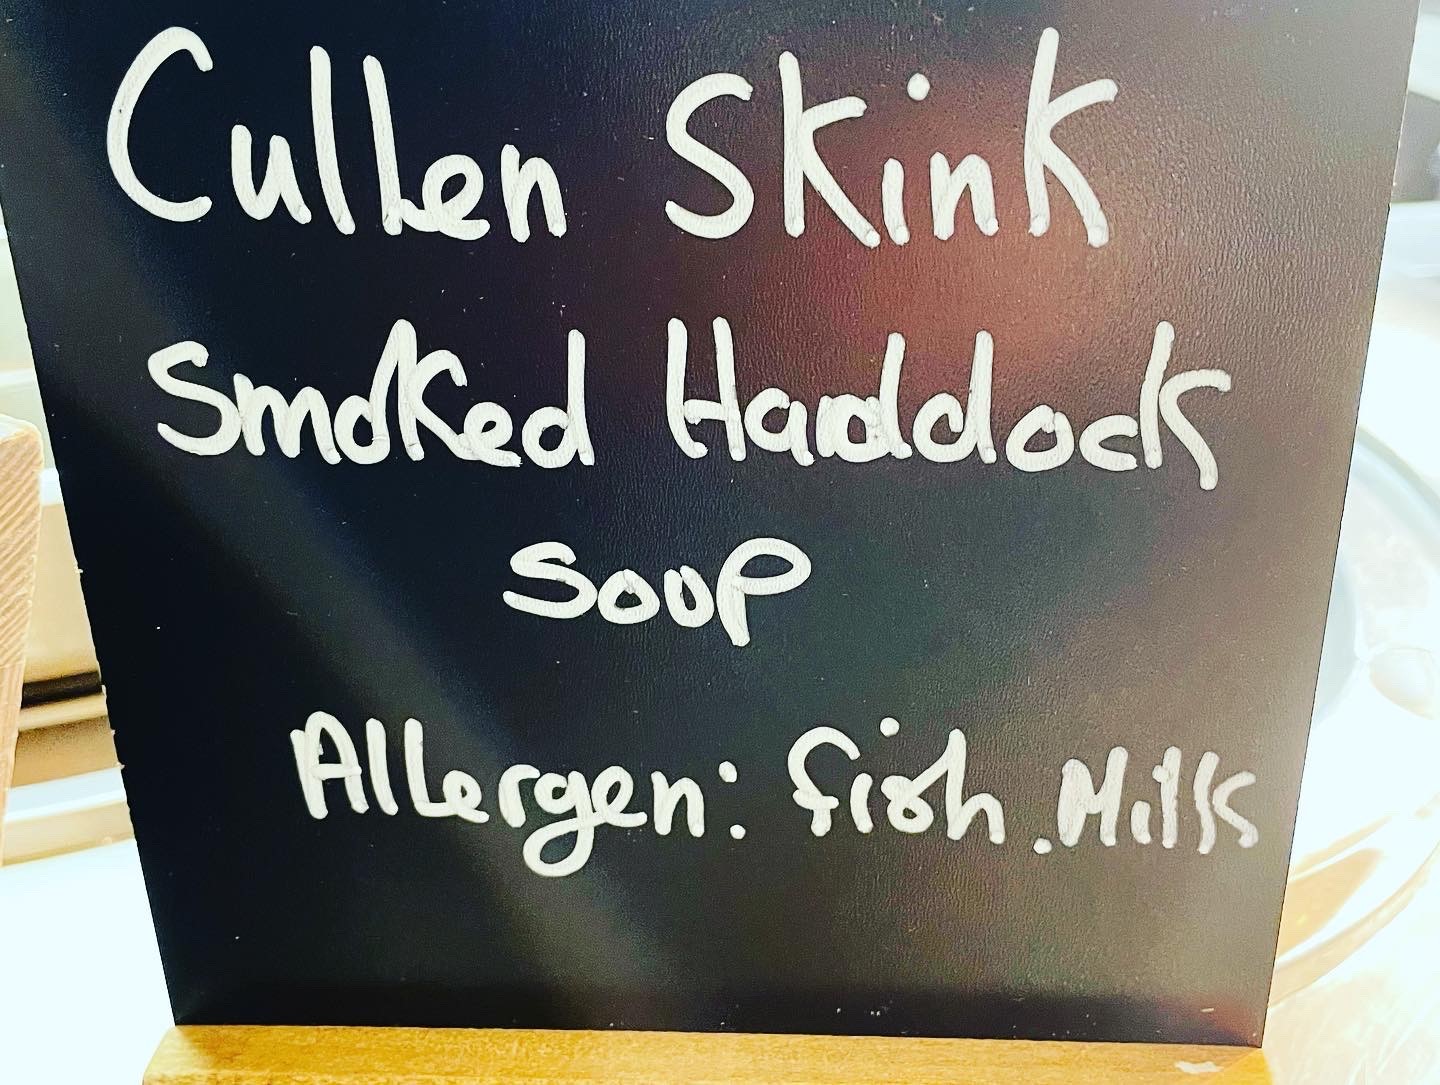 Cullen Skink
Smoked Haddock
Soup
Allergen: fish. Milk